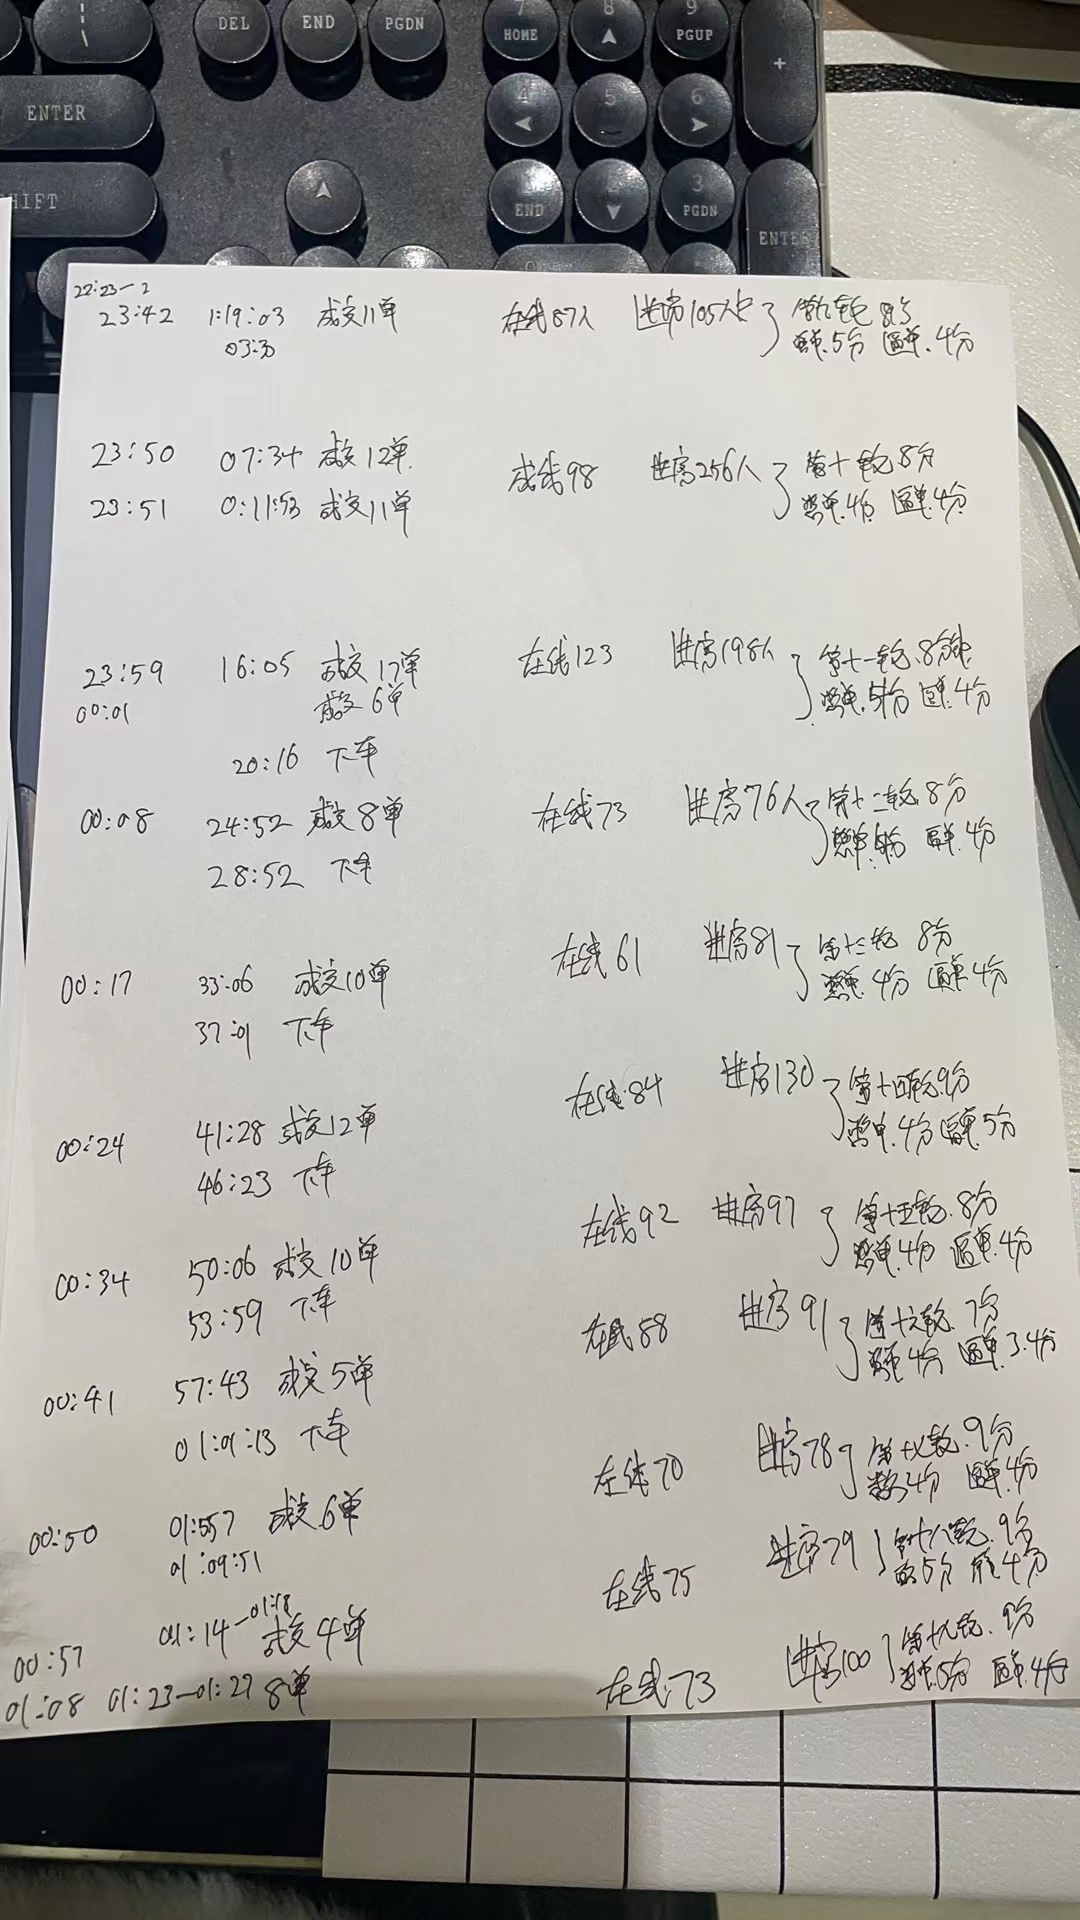 DEL END PGDN 7 HOME 8 9 PGUP +
ENTER 4 5 6
END 2 3 PGDN
HIFT ENTER
22:23-2
23:42 1:19:03 成交11单 在线87人 进房105人 第九轮 8分
03:30 憋单.5分 逼单.4分
23:50 07:34 成交12单. 在线98 进房256人 第十轮 8分
23:51 0:11:53 成交11单 憋单.4分 逼单.4分
23:59 16:05 成交17单 在线123 进房198人 第十一轮.8分钟
00:01 成交6单 憋单.5分 逼单.4分
20:16 下车
00:08 24:52 成交8单 在线73 进房76人 第十二轮 8分
28:52 下车 憋单 逼单.4分
00:17 33:06 成交10单 在线61 进房81 第十三轮 8分
37:01 下车 憋单.4分 逼单4分
00:24 41:28 成交12单 在线84 进房130 第十四轮.9分
46:23 下车 憋单.4分 逼单.5分
00:34 50:06 成交10单 在线92 进房97 第十五轮.8分
53:59 下车 憋单.4分 逼单.4分
00:41 57:43 成交5单 在线88 进房91 第十六轮.7分
01:01:13 下车 憋单4分 逼单3.4分
00:50 01:557 成交6单 在线70 进房78 第十七轮.9分
01:09:51 憋单4分 逼单.4分
00:57 01:14-01:18 成交4单 在线75 进房79 第十八轮.9分
5分 4分
01:08 01:23-01:27 8单 在线.73 进房100 第十九轮.9分
憋单.5分 逼单.4分